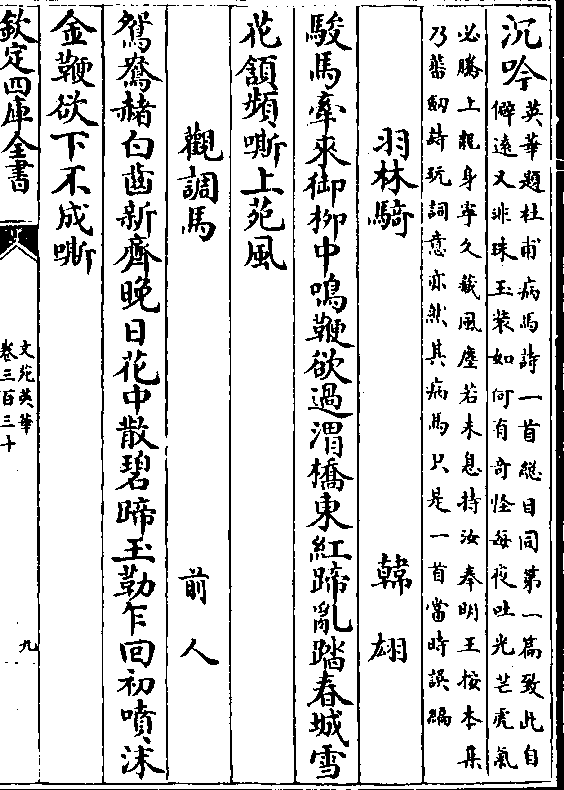 沉吟
英華題杜甫病馬詩一首總目同第一篇致此自
僻遠又非珠玉裝如何有奇怪每夜吐光芒虎氣
必騰上龍身寧久藏風塵若未息持汝奉明王按本集
乃蕃劒詩玩詞意亦然其病馬只是一首當時誤編
羽林騎 韓翃
駿馬牽來御柳中鳴鞭欲過渭橋東紅蹄亂踏春城雪
花頷頻嘶上苑風
觀調馬 前人
鴛鴦赭白齒新齊晚日花中散碧蹄玉勒乍回初噴沫
金鞭欲下不成嘶
欽定四庫全書
文苑英華
卷三百三十
九